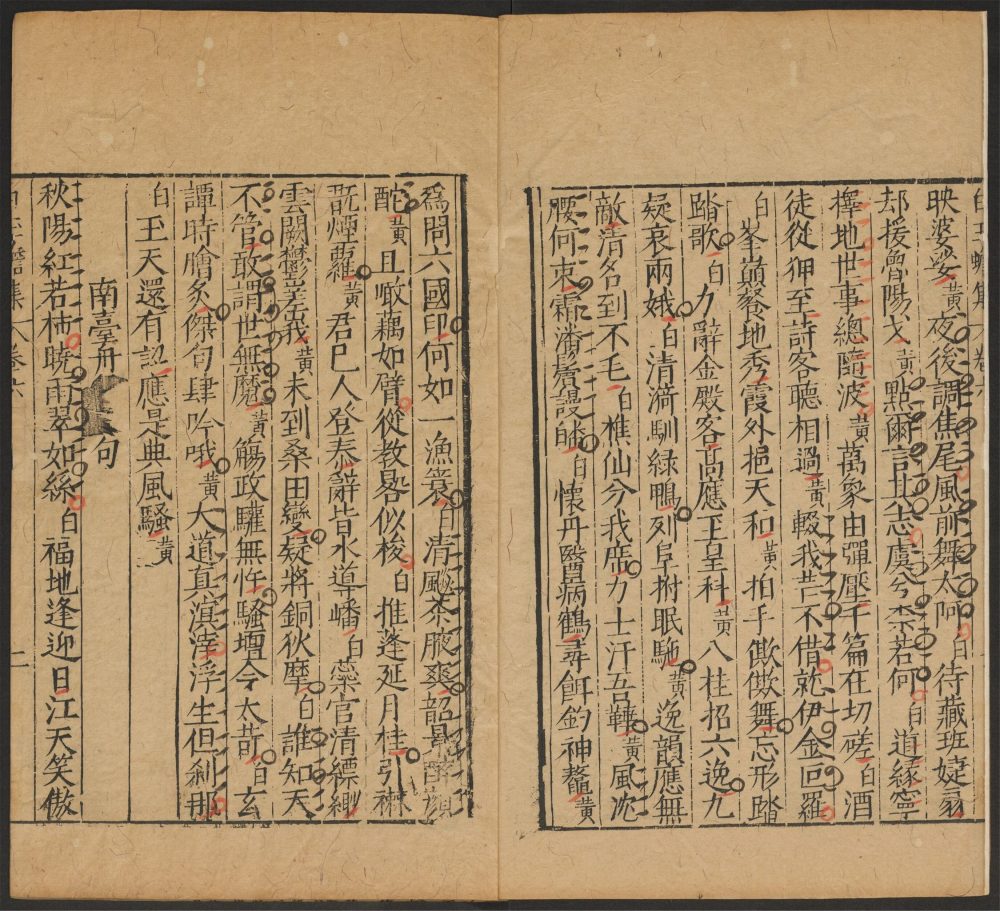 映婆娑黃夜後調焦尾風前舞太阿白待藏班婕扇
却援魯陽戈黃點爾言北志虞兮柰若何白道緣寧
擇地世事總隨波黃萬象由彈壓千篇在切磋白酒
徒從狎至詩客聽相過黃輟我昔不借就伊金叵羅
白峯巔餐地秀霞外挹天和黃拍手傞傞舞忘形踏
踏歌白力辭金殿客高應玉皇科黃八桂招六逸九
疑哀兩娥白清漪馴綠鴨列阜拊眠駞黃逸韻應無
敵清名到不毛白樵仙分我席力士汗吾鞾黃風沈
腰何束霜潘鬢謾皤白懷丹醫病鶴尋餌釣神鼇黃
爲問六國印何如一漁簑白清飈柰腋爽韶景醉顔
酡黃且噉藕如臂從教晷似梭白推蓬延月桂引襟
翫煙蘿黃君巳人登泰辭皆水導嶓白蘂官清縹緲
雲闕鬱峩黃未到桑田變疑將銅狄摩白誰知天
不管敢謂世無魔黃觴政驩無忤騷壇令太苛白玄
譚時膾炙傑句肆吟哦黃大道真滇涬浮生但剎那
白玉天還有詔應是典風騷黃
南臺舟句
秋陽紅若柿曉雨翠如絲白福地逢迎日江天笑傲
二